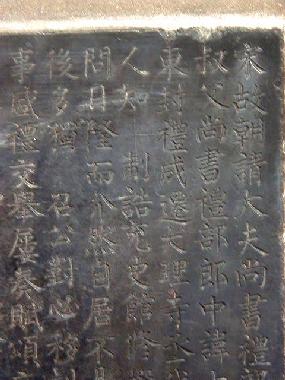 宋故朝請大夫尚書禮部
叔父尚書禮部郎中諱
東封禮成遷大理寺丞
人知制誥充史館修
間日隆而介然自居不
後多獨召公對必移刻
事感禮文舉屢奏賦頌